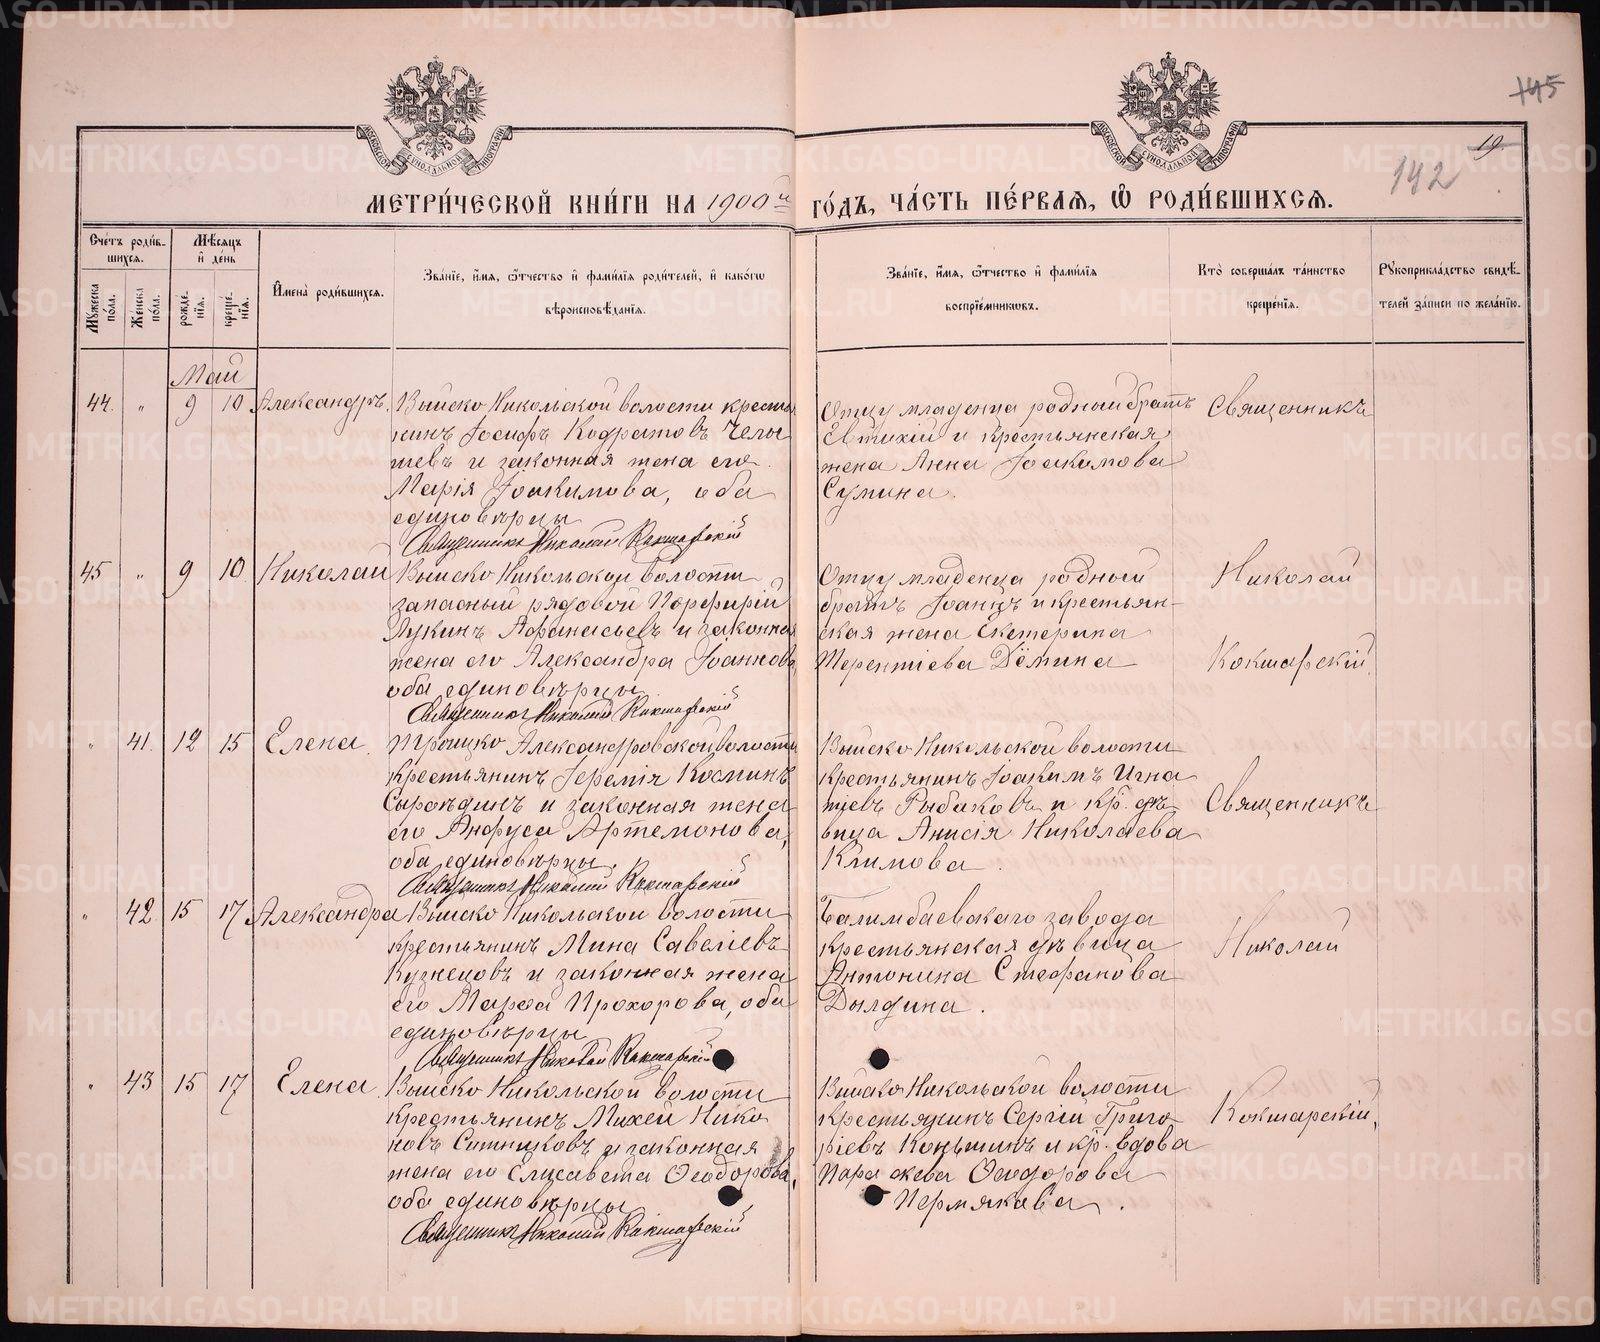 145
19.
142
МЕТРИ́ЧЕСКОЙ КНИ́ГИ НА 1900й ГО́ДЪ, ЧА́СТЬ ПЕ́РВАЯ, Ѽ РОДИ́ВШИХСЯ.
Сче́тъ роди́в-
шихся.
Мѣ́сяцъ
и҆ де́нь
Мꙋжеска по́ла.
Же́нска по́ла.
рожде́-
нїя.
креще́-
нїя.
И҆мена̀ роди́вшихся.
Зва́нїе, и҆́мя, ѻ҆́тчество и҆ фами́лїя роди́телей, и҆ како́гѡ
вѣроисповѣ́данїя.
Зва́нїе, и҆́мя, ѻ҆́тчество и҆ фами́лїя
воспрїе́мникωвъ.
Кто̀ соверша́лъ та́инство
креще́нїя.
Рꙋкоприкла́дство свидѣ́-
телей за́писи по жела́нїю.
Май
44. „ 9 10 Александръ. Выйско Никольской волости кресть
янинъ Іосифъ Кодратовъ Челы
шевъ и законная жена его
Марія Іоакимова, оба
единовѣрцы
Священникъ Николай Кокшарскій
Отцу младенца родный братъ
Евтихій и крестьянская
жена Анна Іоакимова
Сумина.
Священникъ
45 „ 9 10 Николай Выйско Никольской волости
запасный рядовой Порфирій
Лукинъ Афанасьевъ и законная
жена его Александра Іоаннова,
оба единовѣрцы
Священникъ Николай Кокшарскій
Отцу младенца родный
братъ Іоаннъ и крестьян-
ская жена Екатерина
Терентіева Дёмина
Николай
Кокшарскій
„ 41. 12 15 Елена. Троицко Александровской волости
крестьянинъ Іеремія Косминъ
Сыроѣдинъ и законная жена
его Анфуса Артемонова,
оба единовѣрцы.
Священникъ Николай Кокшарскій
Выйско Никольской волости
крестьянинъ Іоакимъ Игна
тіевъ Рыбаковъ и кр. дѣ
вица Анисія Николаева
Климова.
Священникъ
„ 42 15 17 Александра Выйско Никольской волости
крестьянинъ Мина Савеліевъ
Кузнецовъ и законная жена
его Марѳа Прохорова, оба
единовѣрцы
Священникъ Николай Кокшарскій
Билимбаевскаго завода
крестьянская дѣвица
Антонина Стефанова
Дылдина.
Николай
„ 43 15 17 Елена Выйско Никольской волости
крестьянинъ Михей Нико
новъ Ситниковъ и законная
жена его Елисавета Ѳеодорова,
оба единовѣрцы
Священникъ Николай Кокшарскій
Выйско Никольской волости
Крестьянинъ Сергій Григо
ріевъ Коньшинъ и кр. вдова
Параскева Ѳеодорова
Пермякова.
Кокшарскій,